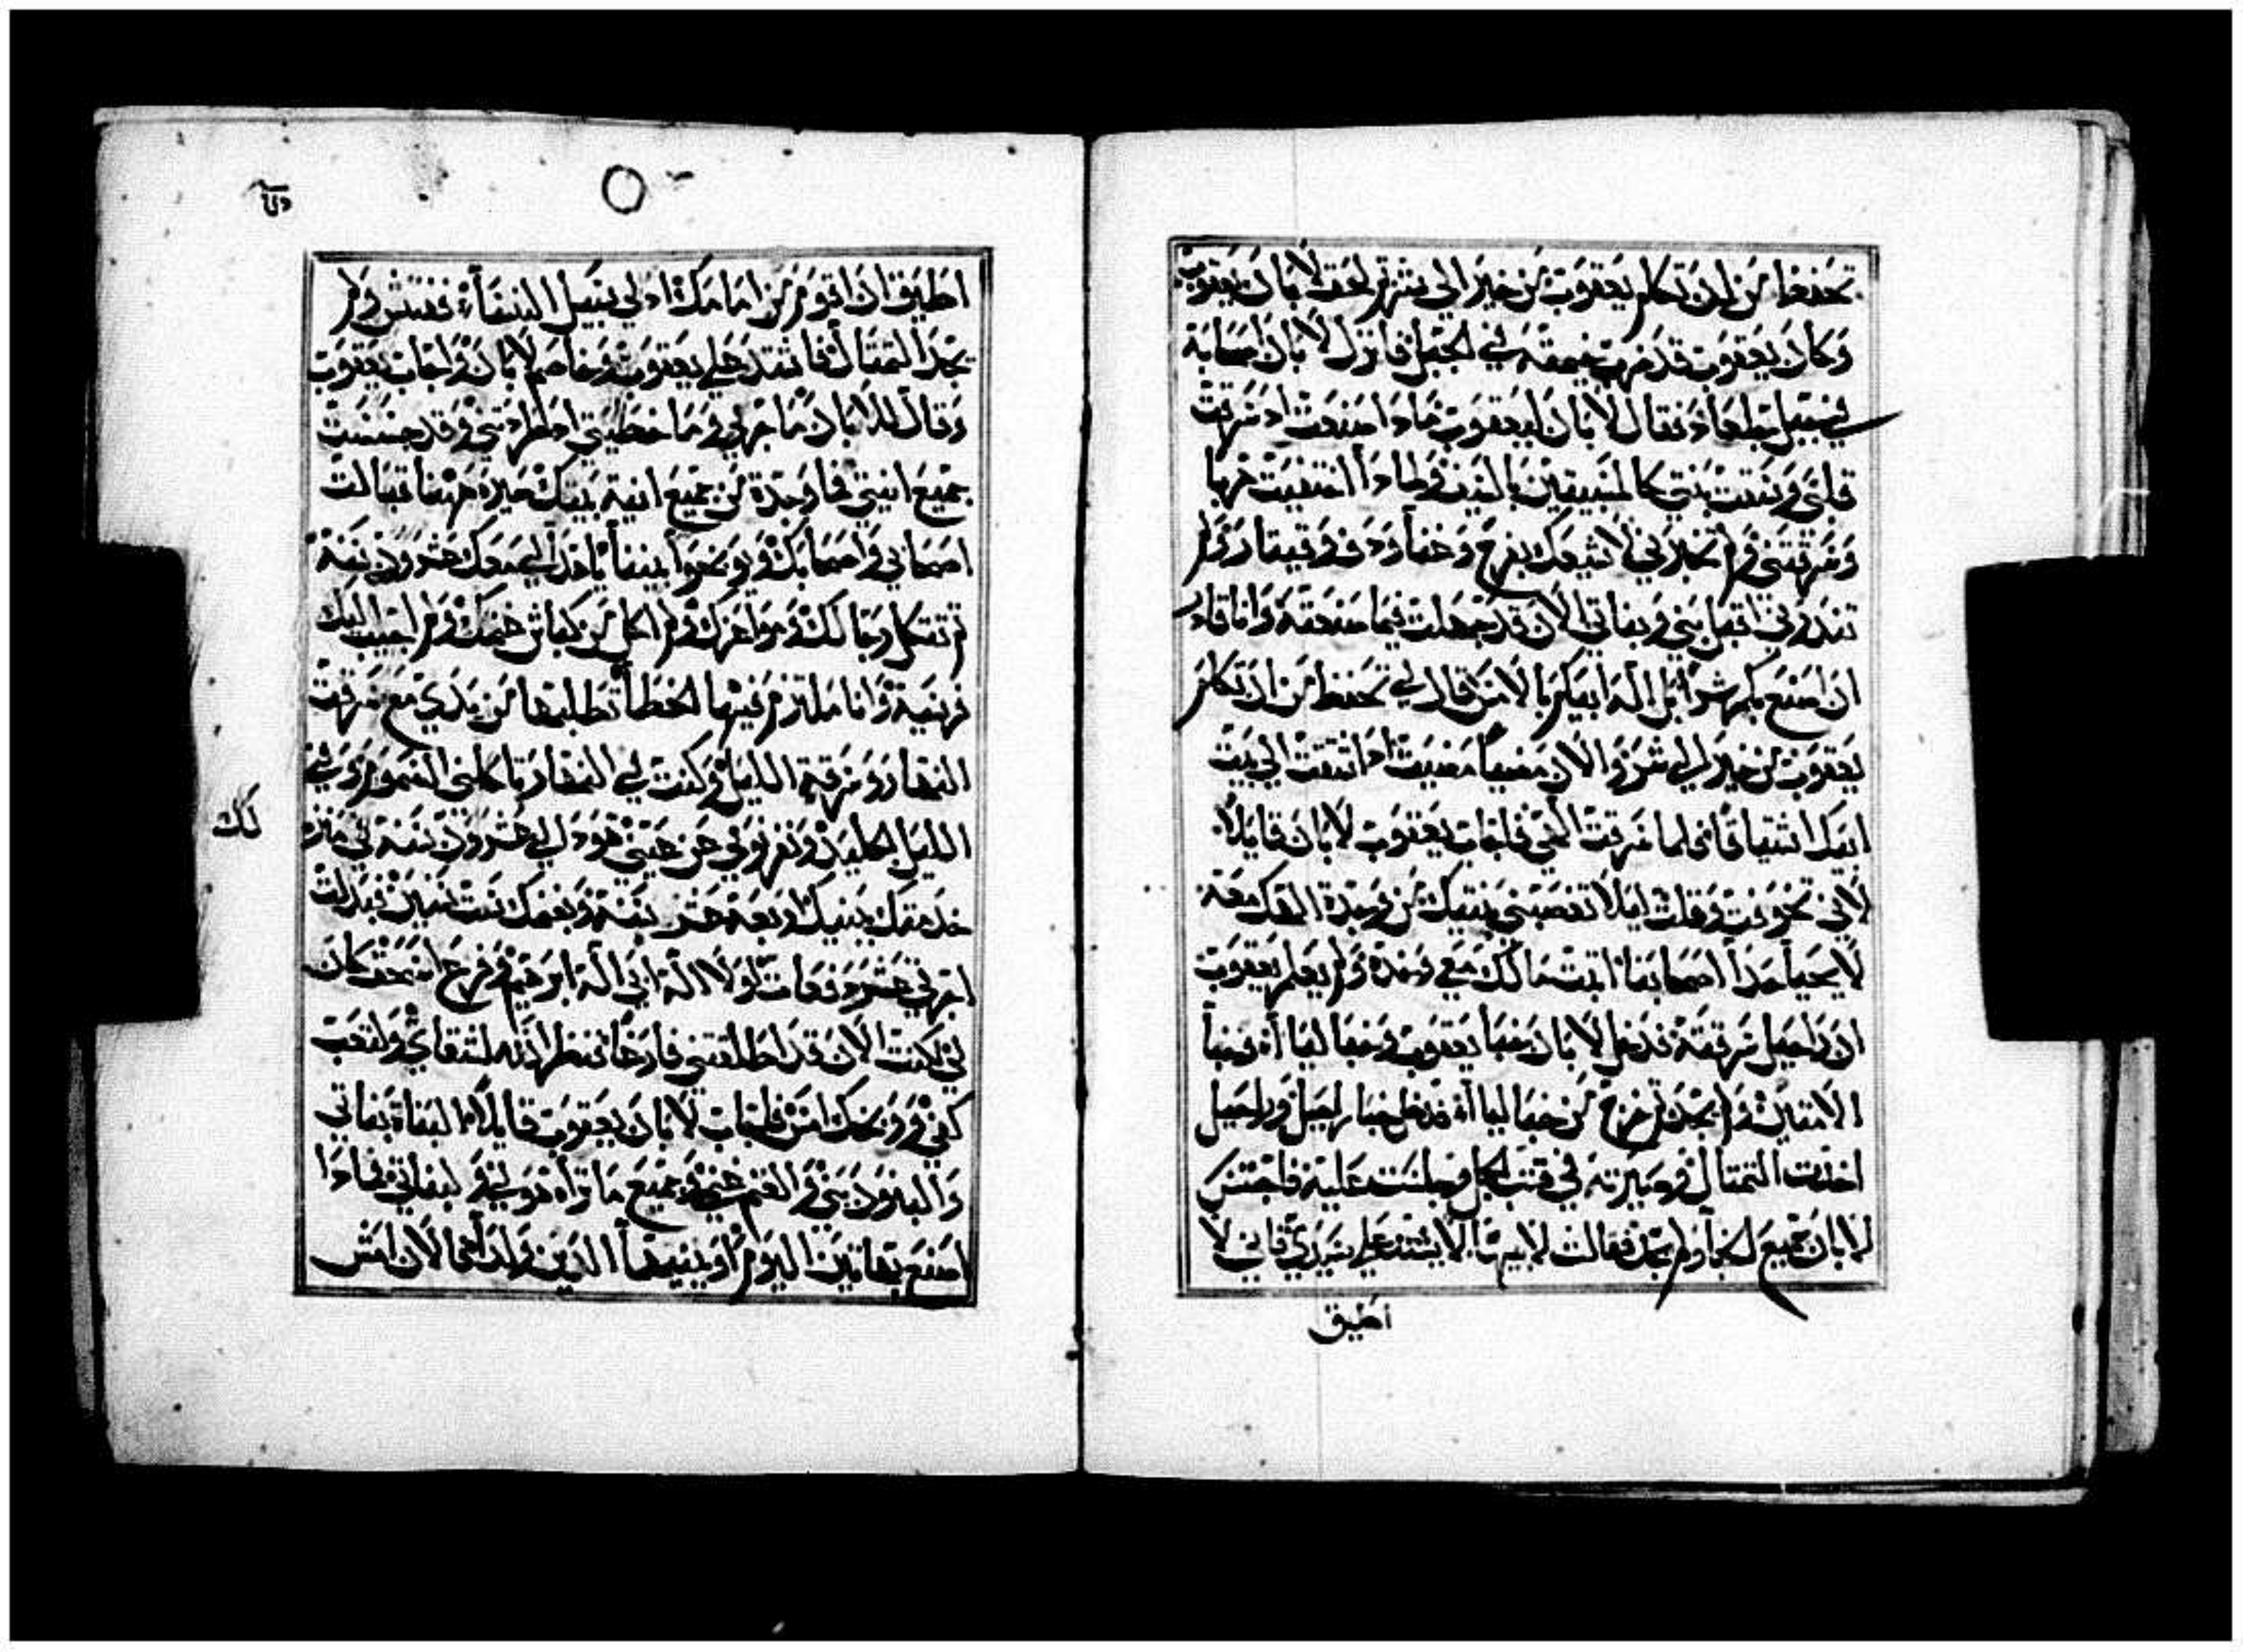 تحفظ من ان تكلم يعقوب من خير الي شر ثم لحق لابان يعقوب
وكان يعقوب قد ضرب خيمته في الجبل فانزل لابان اصحابه
في جبل جلعاد فقال لابان ليعقوب ماذا صنعت اذ سرقت
قلبي وسقت بنتي كالمسبيين بالسيف ولماذا اختفيت هربا
وسرقتني ولم تخبرني لاشيعك بفرح وغنا ودف وقيثار ولم
تتذروني اقبل بني وبناتي الان قد جهلت فيما صنعته وانا قادر
ان اصنع بكم شرا بل اله ابيكم بالامس قال لي تحفظ من ان تكلم
يعقوب من خير الي شر والان مضيا مضيت اذ اشتقت الي بيت
ابيك اشتياقا فلما سرقت الهي فاجاب يعقوب لابان قايلا
لاني تخوفت وقلت ليلا تغصبني بنتيك من وجدة الهك معه
لا يحيا حذا اصحابنا اثبت مالك معي وخذه ولم يعلم يعقوب
ان راحيل سرقته فدخل لابان خبا يعقوب وخبا ليا أة وخبا
الامتين ولم يجد ثم خرج من خبا ليا أة فدخل خبا راحيل وراحيل
اخذت التمثال وصيرته في قتب الجمل وجلست عليه فاجتس
لابان جميع الخبا ولم يجد فقالت لابيها لا يشتد علي سيدي فاني لا
اطيق
اطيق ان اقوم من امامك اذ لي سبيل النسآء ففتش ولم
يجد التمثال فاشتد علي يعقوب وخاصم لابان واجاب يعقوب
وقال للابان ما جرمي وما خطيتي اذ طردتني وقد جسست
جميع انيتي فما وجدة من جميع انية بيتك صيره ههنا قبالت
اصحابي واصحابك ويوبخوا بيننا هذا لي معك عشرون سنة
لم تثكل رخالك ومواعزك ولم اكل من كباش غنمك ولم اجيب اليك
فريسة وانا ملتزم فيها الخطا تطلبها من يدي مع سرقت
النهار وسرقة الليل وكنت في النهار ياكلني السموم وفي
الليل الجليد ونفر نومي عن عيني هوذا لي عشرون سنة في منزلك
خدمتك ببنتيك اربعة عشر سنة وبغنمك ست سنين فبدلت
اجرتي عشر دفعات لولا اله ابي اله ابرهيم وفزع اسحق كان
لي لكنت الان قد اطلقتني فارغا فنظر الله لشقاي ولتعب
كفي ووبخك امس فاجاب لابان يعقوب قايلا البناة بناتي
والبنون بني والغنم غنمي وجميع ما تراه هو لي ولبناتي فماذا
اصنع بهاتين اليوم او ببنيهما الذين ولداهما الان امش